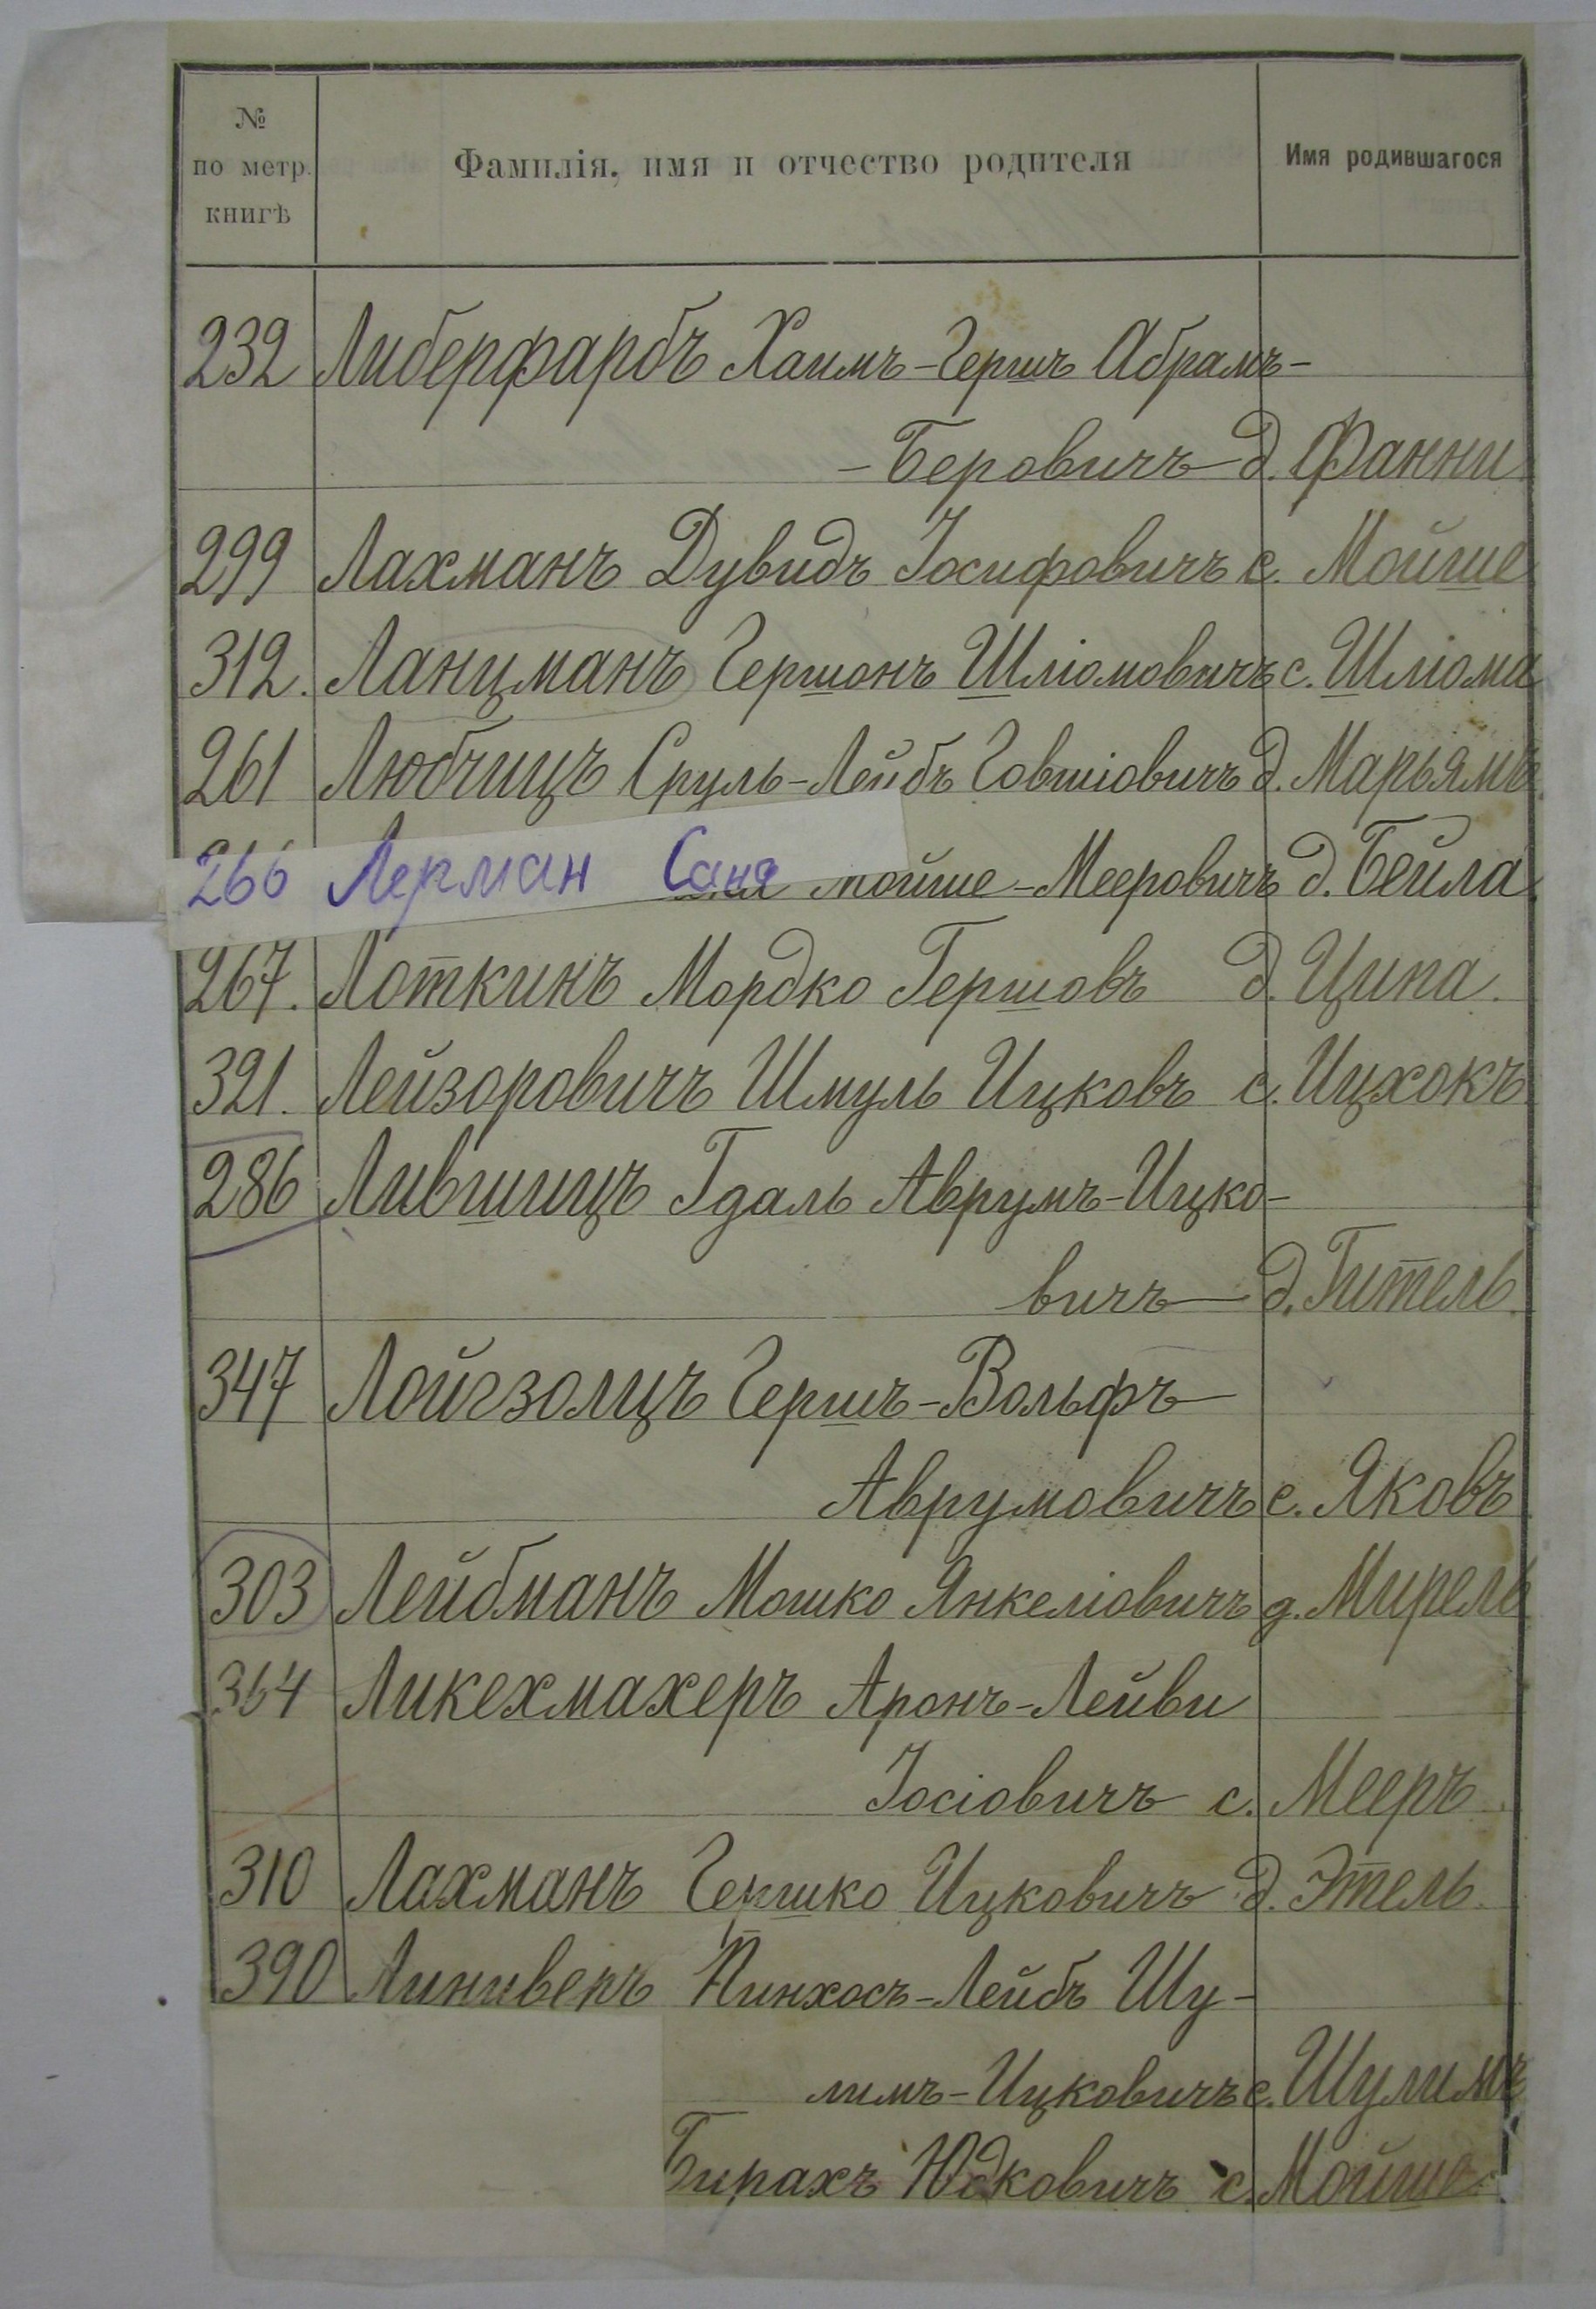 № по метр. книгѣ Фамилія, имя и отчество родителя Имя родившагося
232 Либерфарбъ Хаимъ-Гершъ Абрамъ-
-Беровичъ д. Фанни
299 Лахманъ Дувидъ Іосифовичъ с. Мойше
312. Ланцманъ Гершонъ Шліомовичъ с. Шліома
261 Любчицъ Сруль-Лейбъ Говшіовичъ д. Марьямъ
266 Лерман Саня мойше-Мееровичъ д. Бейла
267. Лоткинъ Мордко Гершовъ д. Ципа.
321. Лейзоровичъ Шмуль Ицковъ с. Ицхокъ
286 Лившицъ Гдаль Аврумъ-Ицко-
вичъ д. Гитель.
347 Лойгзолцъ Гершъ-Вольфъ
Аврумовичъ с. Яковъ
303 Лейбманъ Мошко Янкеліовичъ д. Мирель
364 Ликехмахеръ Аронъ-Лейви
Іосіовичъ с. Мееръ
310 Лахманъ Гершко Ицковичъ д. Этель.
390 Линиверъ Пинхосъ-Лейбъ Шу-
лимъ-Ицковичъ с. Шулимъ
Бирахъ Юдковичъ с. Мойше